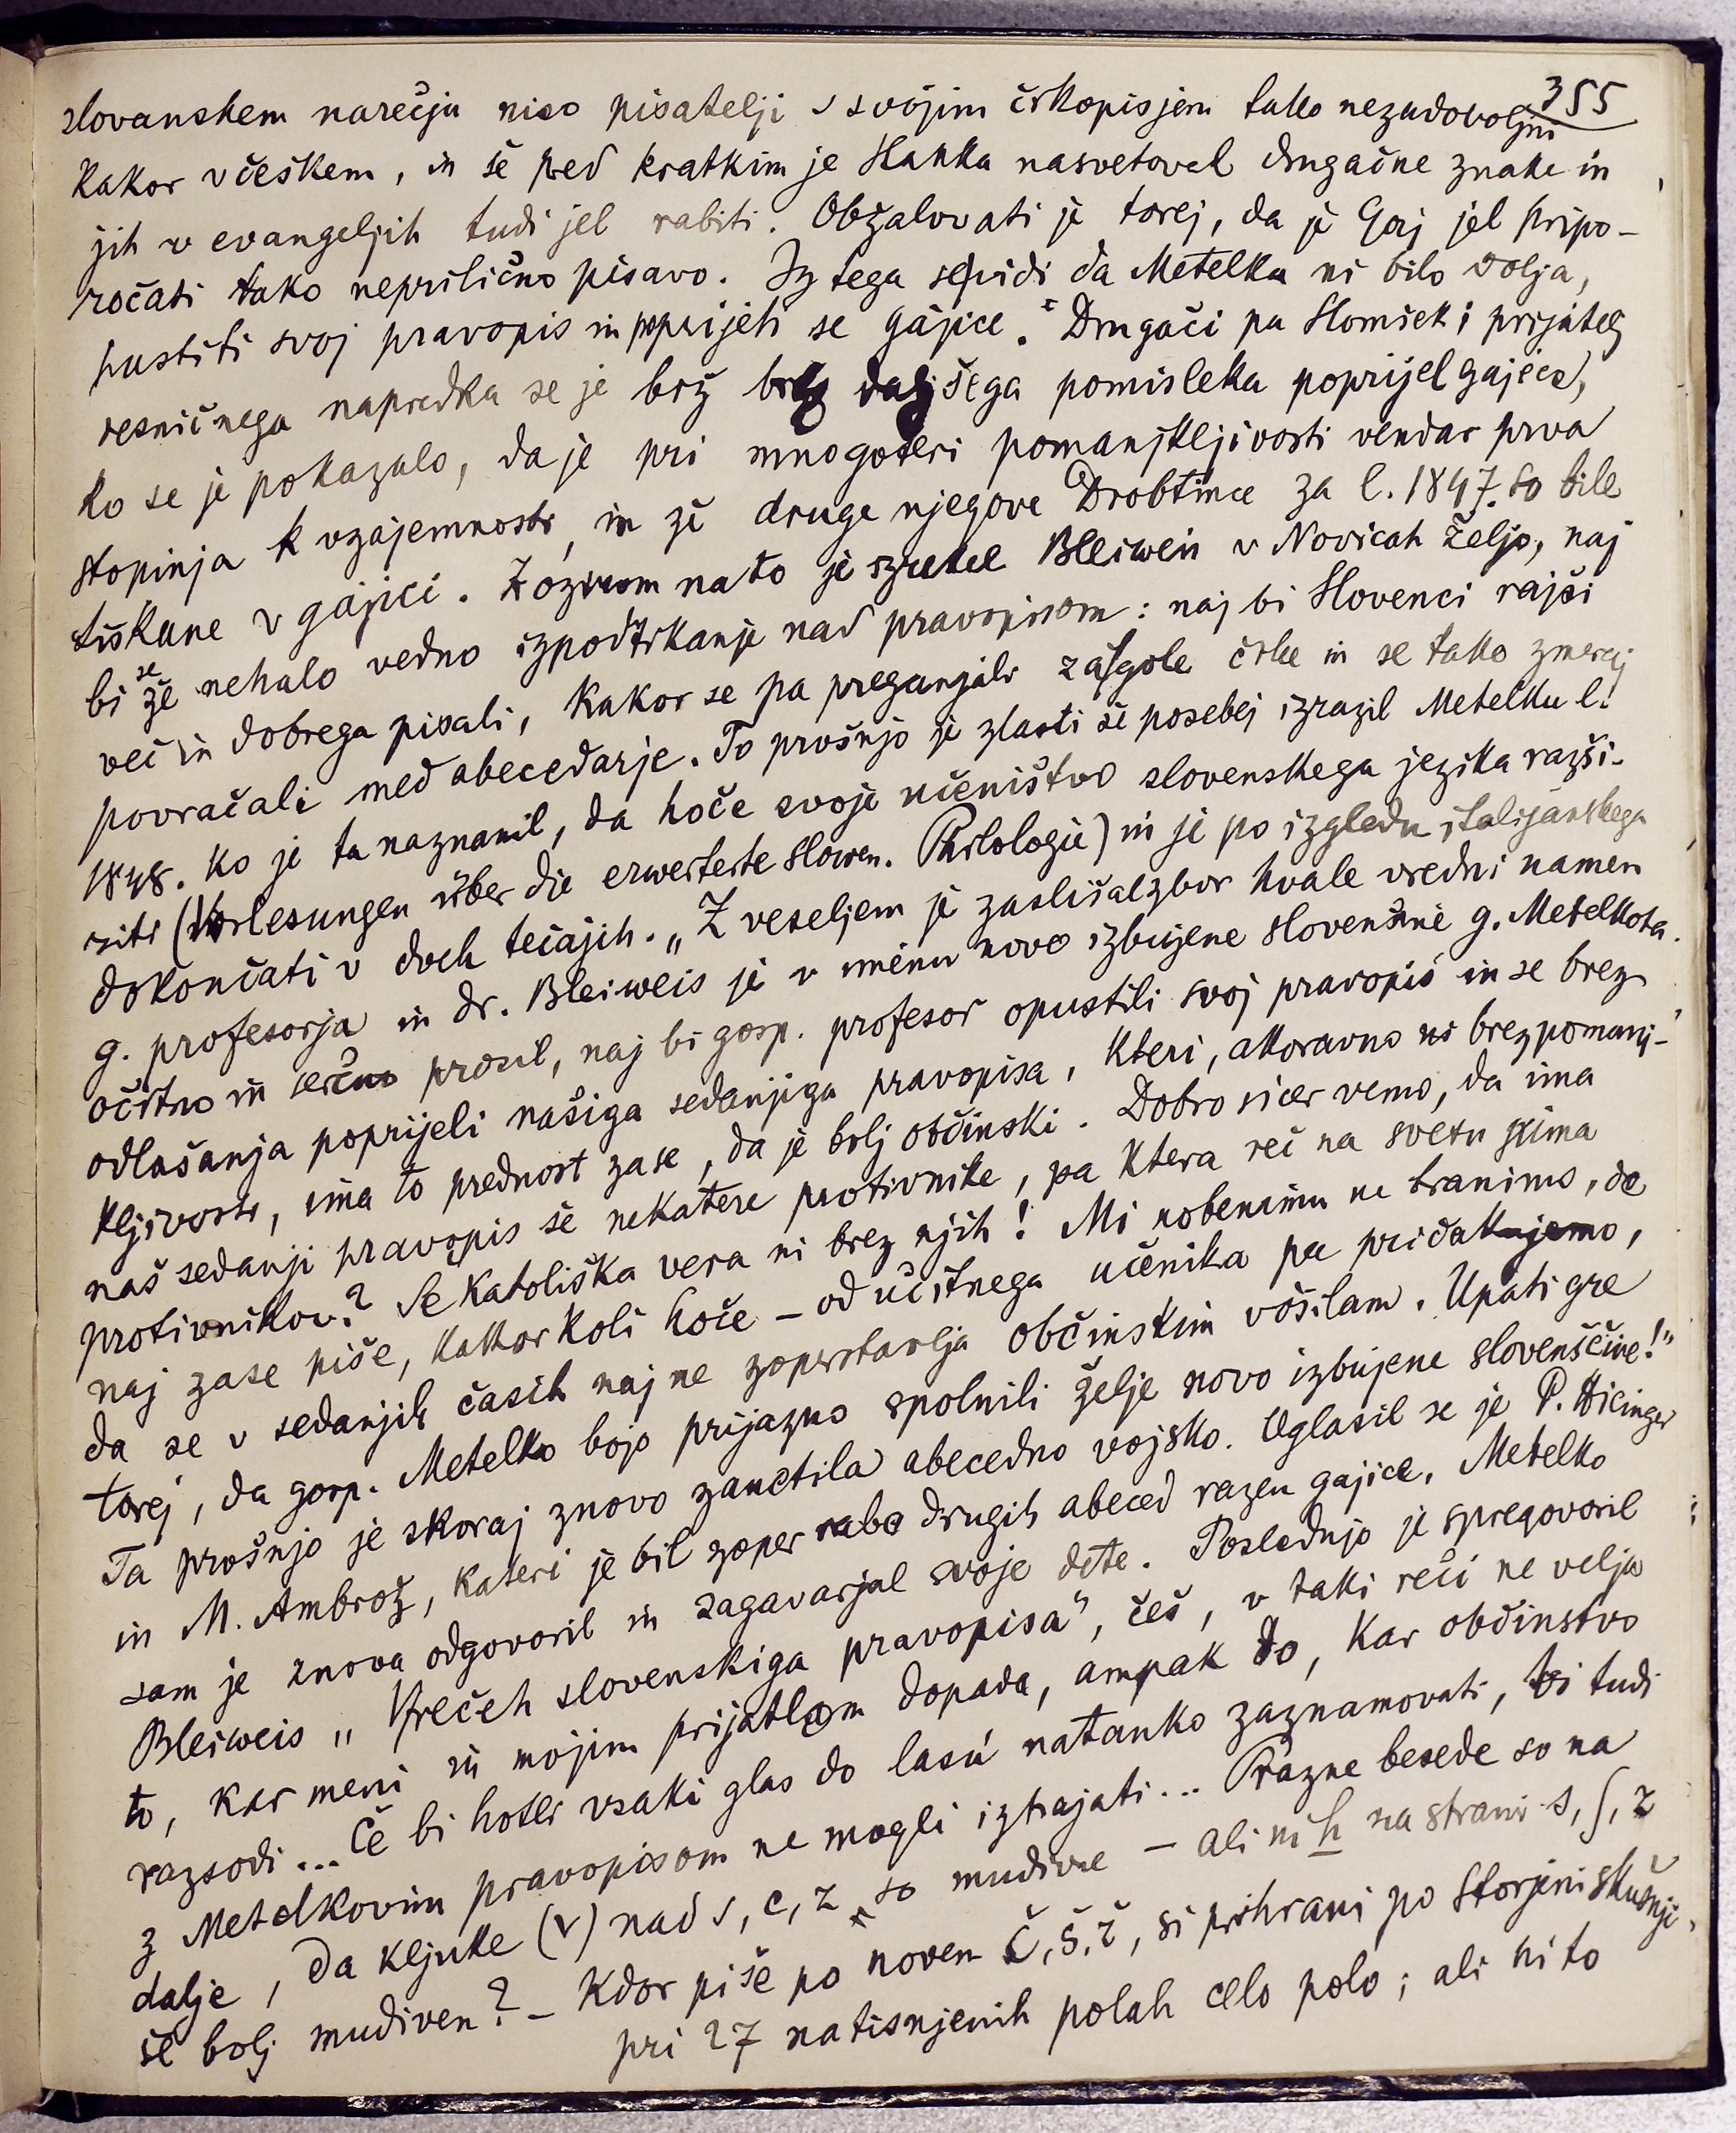 355
slovanskem narečju niso pisatelji s svojim črkopisjem tako nezadovoljni
kakor v češkem, in še pred kratkim je Hanka nasvetoval drugačne znake in
jih v evangeljih tudi jel rabiti. Obžalovati je torej, da je Gaj jel pripo-
ročati tako neprilično pisavo. Iz tega se vidi da Metelku ni bilo volja,
pustiti svoj pravopis in poprijeti se gajice." Drugači pa Slomšek; prijatelj
resničnega napredka se je brž brez daljšega pomisleka poprijel gajice,
ko se je pokazalo, da je pri mnogoteri pomanjkljivosti vendar prva
stopinja k vzajemnosti, in že druge njegove Drobtince za l. 1847. so bile
tiskane v gajici. Z ozirom na to je izrekel Bleiweis v Novicah željo, naj
bi se že nehalo vedno izpodtikanje nad pravopisom: naj bi Slovenci rajši
več in dobrega pisali, kakor se pa preganjali za gole črke in se tako zmeraj
povračali med abecedarje. To prošnjo je zlasti še posebej izrazil Metelku l.
1848. ko je ta naznanil, da hoče svoje učeništvo slovenskega jezika razši-
riti (Vorlesungen über die erweiterte slowen. Philologie) in je po izgledu italijanskega
dokončati v dveh tečajih. „Z veseljem je zaslišal zbor hvale vredni namen
g. profesorja in dr. Bleiweis je v imenu novo izbujene slovenšine g. Metelkota
očitno in serčno prosil, naj bi gosp. profesor opustili svoj pravopis in se brez
odlašanja poprijeli našiga sedanjiga pravopisa, kteri, akoravno ni brez pomanj-
kljivosti, ima to prednost zase, da je bolj občinski. Dobro sicer vemo, da ima
naš sedanji pravopis še nekatere protivnike, pa ktera reč na svetu nima
protivnikov? Še katoliška vera ni brez njih! Mi nobenimu ne branimo, de
naj zase piše, kakor koli hoče – od učitnega učenika pa pričakujemo,
da se v sedanjih časih naj ne zoperstavlja občinskim vošilam. Upati gre
torej, da gosp. Metelko bojo prijazno spolnili želje novo izbujene slovenščine!"
Ta prošnjo je skoraj znovo zanetila abecedno vojsko. Oglasil se je P. Hicinger
in M. Ambrož, kateri je bil zoper rabo drugih abeced razen gajice. Metelko
sam je znova odgovoril in zagavarjal svoje dete. Poslednjo je spregovoril
Bleiweis „V rečeh slovenskiga pravopisa", češ, v taki reči ne velja
to, kar meni in mojim prijatlam dopada, ampak to, kar občinstvo
razsodi... Če bi hotli vsaki glas do lasú natanko zaznamovati, bi tudi
z Metelkovim pravopisom ne mogli iztrajati... Prazne besede so na
dalje, da kljuke (v) nad s, c, z so mudivne – ali ni h na strani s, ʃ, z
še bolj mudiven? – Kdor piše po novem č, š, ž, si prihrani po storjeni skušnji
pri 27 natisnjenih polah celo polo; ali ni to